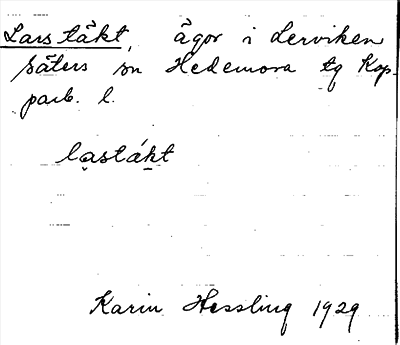 Larstäkt, ägor i Lerviken
Säters sn Hedemora tg Kop-
parb. l.
lastákt
Karin Hessling 1929